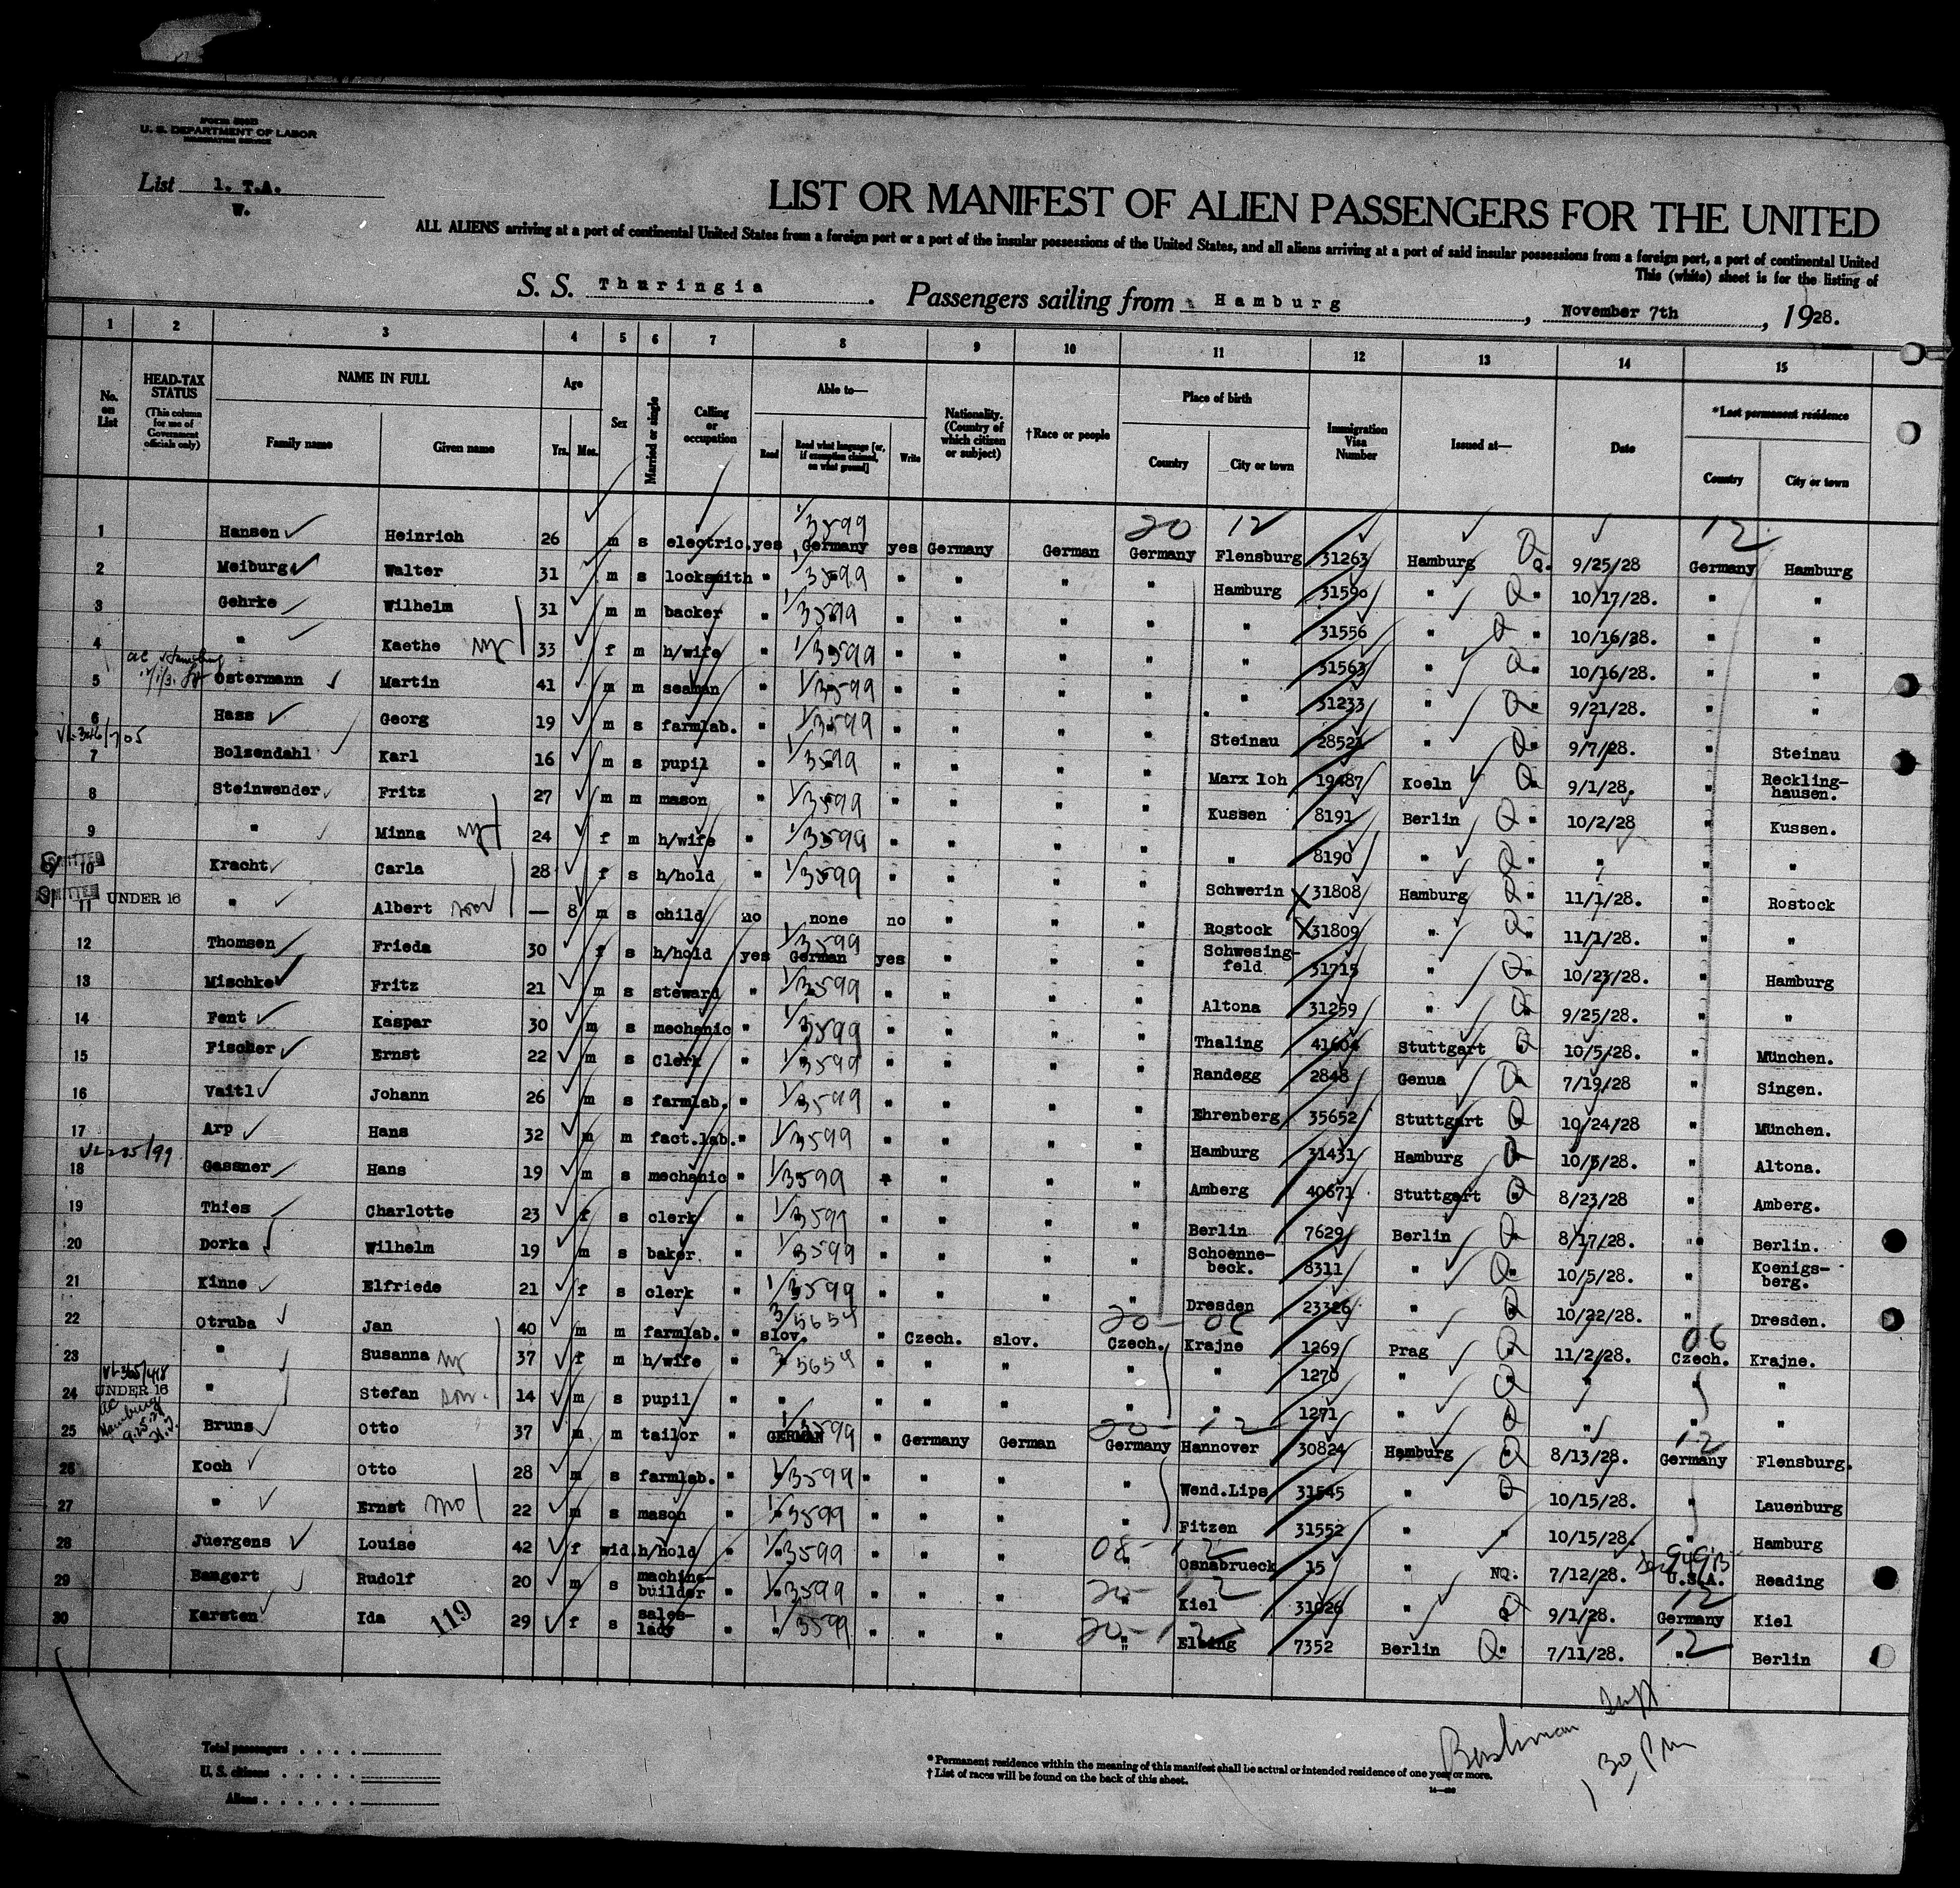 Form 500B
U. S. DEPARTMENT OF LABOR
IMMIGRATION SERVICE
List 1. T.A.
W.
LIST OR MANIFEST OF ALIEN PASSENGERS FOR THE UNITED
ALL ALIENS arriving at a port of continental United States from a foreign port or a port of the insular possessions of the United States, and all aliens arriving at a port of said insular possessions from a foreign port, a port of continental United
This (white) sheet is for the listing of
S. S. Thuringia . Passengers sailing from Hamburg , November 7th , 1928.
1 2 3 4 5 6 7 8 9 10 11 12 13 14 15
No. on List
HEAD-TAX STATUS (This column for use of Government officials only)
NAME IN FULL Family name Given name
Age Yrs. Mos.
Sex
Married or single
Calling or occupation
Able to— Read Read what language [or, if exemption claimed, on what ground] Write
Nationality. (Country of which citizen or subject)
†Race or people
Place of birth Country City or town
Immigration Visa Number
Issued at—
Date
*Last permanent residence Country City or town
1 Hansen Heinrich 26 m s electric. yes 1/3599 Germany yes Germany German 20 12 Germany Flensburg 31263 Hamburg Q. 9/25/28 12 Germany Hamburg
2 Meiburg Walter 31 m s locksmith " 1/3599 " " " " Hamburg 31590 " Q 10/17/28. " "
3 Gehrke Wilhelm 31 m m backer " 1/3599 " " " " " 31556 " Q 10/16/28. " "
4 " Kaethe 33 f m h/wife " 1/3599 " " " " " 31563 " Q 10/16/28. " "
5 Ostermann Martin 41 m m seaman " 1/3599 " " " " " 31233 " Q 9/21/28. " "
6 Hass Georg 19 m s farmlab. " 1/3599 " " " " Steinau 28521 " Q 9/7/28. " Steinau
VL-346/705
7 Bolzendahl Karl 16 m s pupil " 1/3599 " " " " Marx loh 19487 Koeln Q 9/1/28. " Recklinghausen.
8 Steinwender Fritz 27 m m mason " 1/3599 " " " " Kussen 8191 Berlin Q 10/2/28 " Kussen.
9 " Minna 24 f m h/wife " 1/3599 " " " " " 8190 " Q " " "
10 Kracht Carla 28 f s h/hold " 1/3599 " " " " Schwerin X 31808 Hamburg Q 11/1/28. " Rostock
11 UNDER 16 " Albert son — 8 m s child no none no " " " Rostock X 31809 " Q 11/1/28. " "
12 Thomsen Frieda 30 f s h/hold yes 1/3599 German yes " " " Schwesingfeld 31715 " Q 10/23/28. " Hamburg
13 Mischke Fritz 21 m s steward " 1/3599 " " " " Altona 31259 " Q 9/25/28. " "
14 Fent Kaspar 30 m s mechanic " 1/3599 " " " " Thaling 41604 Stuttgart Q 10/5/28. " München.
15 Fischer Ernst 22 m s Clerk " 1/3599 " " " " Randegg 2848 Genua Q 7/19/28 " Singen.
16 Vaitl Johann 26 m s farmlab. " 1/3599 " " " " Ehrenberg 35652 Stuttgart Q 10/24/28 " München.
17 Arp Hans 32 m m fact.lab. " 1/3599 " " " " Hamburg 31431 Hamburg Q 10/5/28. " Altona.
18 Gassner Hans 19 m s mechanic " 1/3599 " " " " Amberg 40671 Stuttgart Q 8/23/28 " Amberg.
19 Thies Charlotte 23 f s clerk " 1/3599 " " " " Berlin 7629 Berlin Q 8/17/28. " Berlin.
20 Dorka Wilhelm 19 m s baker " 1/3599 " " " " Schoennebeck. 8311 " Q 10/5/28. " Koenigsberg.
21 Kinne Elfriede 21 f s clerk " 1/3599 " " " " Dresden 23326 " Q 10/22/28. " Dresden.
22 Otruba Jan 40 m m farmlab. " 3/5654 slov. " Czech. slov. 20-06 Czech. Krajne 1269 Prag Q 11/2/28. 06 Czech. Krajne.
23 " Susanna 37 f m h/wife " 3/5654 " " " " " 1270 " Q " " "
24 VL-365/418 UNDER 16 " Stefan son 14 m s pupil " " " " " " " 1271 " Q " " "
25 Bruns Otto 37 m m tailor " 1/3599 GERMAN " Germany German 20-12 Germany Hannover 30824 Hamburg Q 8/13/28. 12 Germany Flensburg.
26 Koch Otto 28 m s farmlab. " 1/3599 " " " " Wend.Lips 31545 " Q 10/15/28. " Lauenburg
27 " Ernst 22 m s mason " 1/3599 " " " " Fitzen 31552 " " 10/15/28. " Hamburg
28 Juergens Louise 42 f wid. h/hold " 1/3599 " " " 08-12 " Osnabrueck 15 " NQ. 7/12/28. U.S.A. Reading
29 Bangert Rudolf 20 m s machine-builder " 1/3599 " " " 20-12 " Kiel 31026 " Q 9/1/28. 12 Germany Kiel
30 Karsten Ida 119 29 f s sales-lady " 1/3599 " " " 20-12 " Elbing 7352 Berlin Q 7/11/28. 12 " Berlin
Total passengers . . . .
U. S. citizens . . . . .
Aliens . . . . . .
* Permanent residence within the meaning of this manifest shall be actual or intended residence of one year or more.
† List of races will be found on the back of this sheet.
1 30 PM